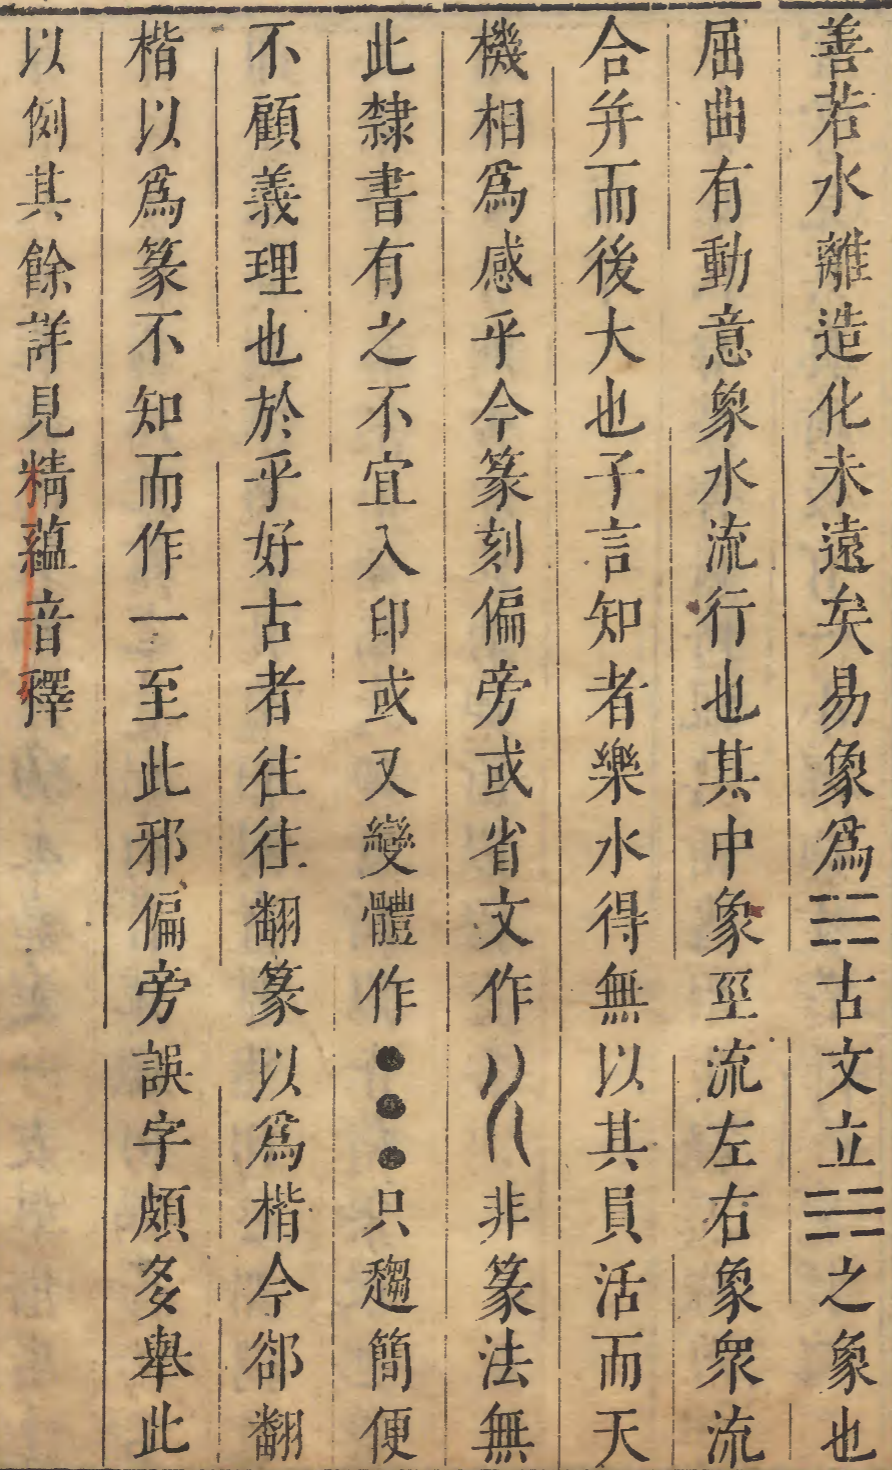 善若水離造化未遠矣易象爲☵古文立☵之象也
屈曲有動意象水流行也其中象巠流左右象衆流
合并而後大也子言知者樂水得無以其員活而天
機相爲感乎今篆刻偏旁或省文作非篆法無
此隸書有之不宜入印或又變體作●●●只趨簡便
不顧義理也於乎好古者往往翻篆以爲楷今郤翻
楷以爲篆不知而作一至此邪偏旁誤字頗多舉此
以例其餘詳見精蘊音釋